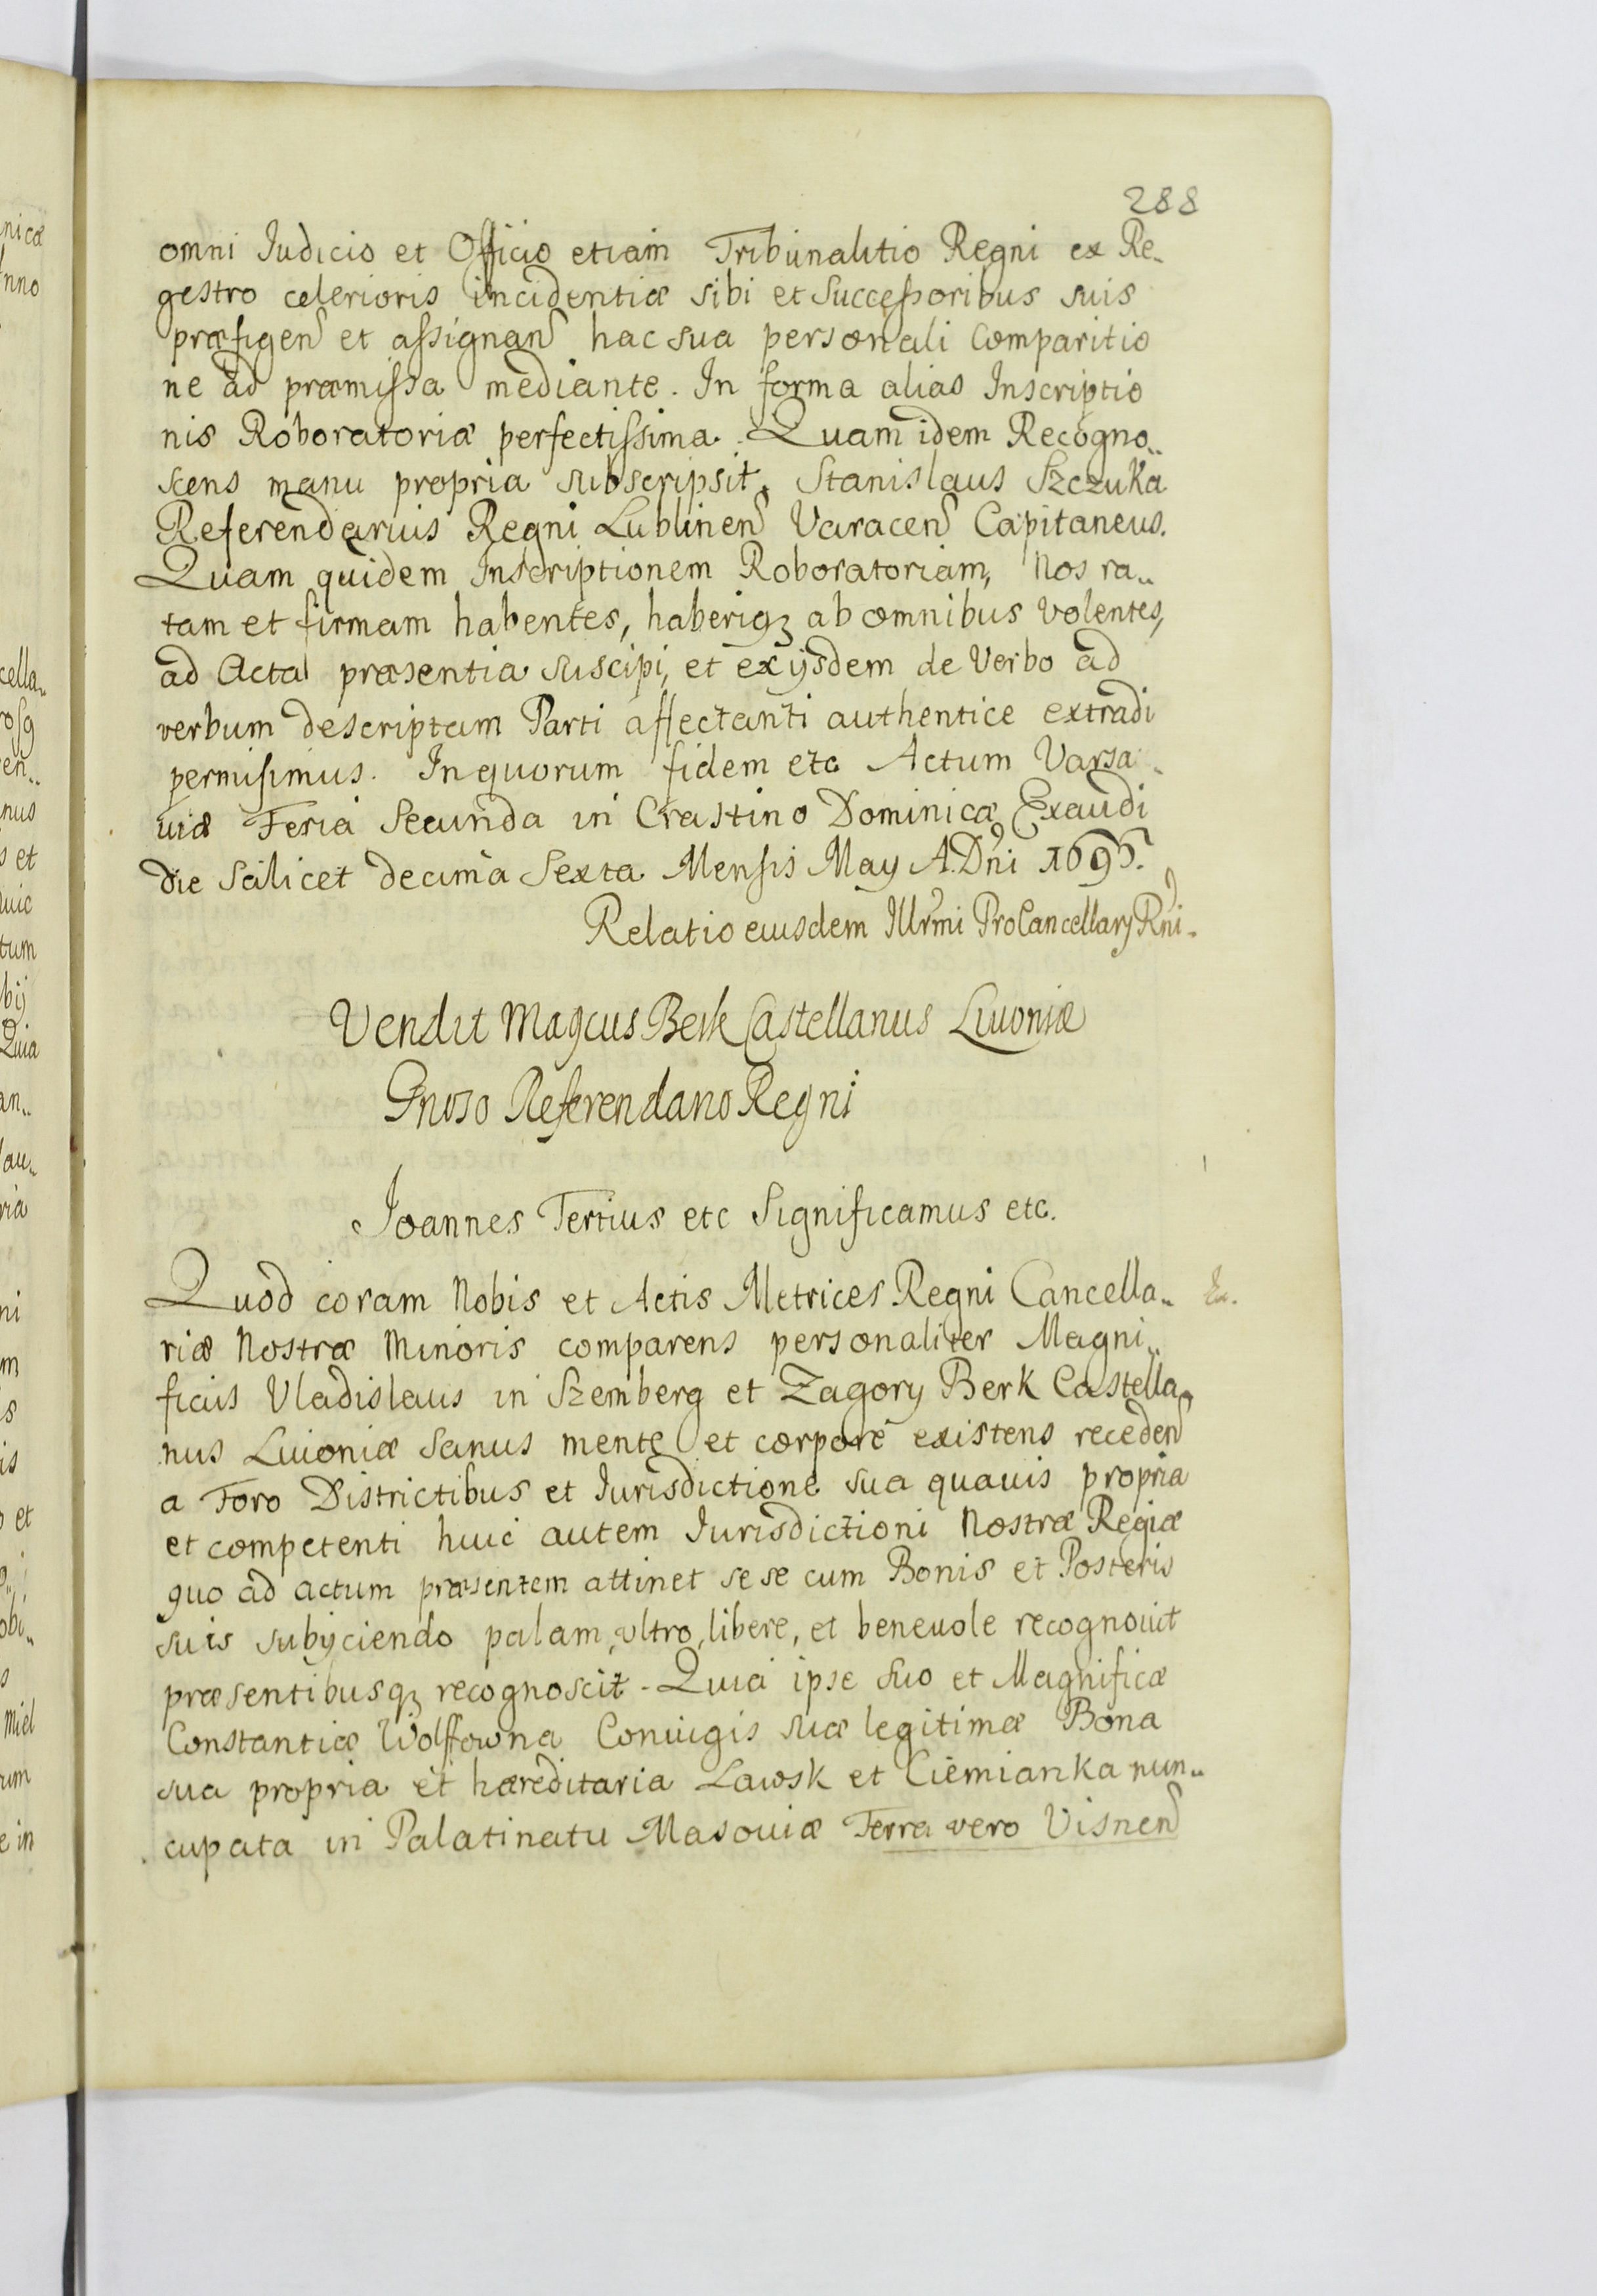 288
omni Iudicio et Officio etiam Tribunalitio Regni ex Re„
gestro celerioris incidentiæ sibi et Successoribus suis
præfigen et assignan hac sua personali Comparitio
ne ad præmissa mediante. In forma alias Inscriptio
nis Roboratoriæ perfectissima. Quam idem Recogno„
scens manu propria subscripsit. Stanislaus Szczuka
Referendarius Regni Lublinen Varacen Capitaneus.
Quam quidem Inscriptionem Roboratoriam, Nos ra„
tam et firmam habentes, haberiqꝫ ab omnibus volentes,
ad Acta præsentia suscipi, et exijsdem de Verbo ad
verbum descriptam Parti affectanti authentice extradi
permisimus. In quorum fidem etc Actum Varsa„
uiæ Feria Secunda in Crastino Dominicæ Exaudi
die Scilicet decima Sexta Mensis May A. Dni
Relatio eiusdem Illrmi ProCancellarij Rni.
Vendit Magcus Berk Castellanus Liuoniæ
Gnoso Referendario Regni
Joannes Tertius etc Significamus etc.
Quod coram Nobis et Actis Metrices Regni Cancella„
riæ Nostræ Minoris comparens personaliter Magni„
ficus Vladislaus in Szemberg et Zagory Berk Castella„
nus Liuoniæ sanus mente et corpore existens receden
a Foro Districtibus et Iurisdictione sua quauis propria
et competenti huic autem Iurisdictioni Nostræ Regiæ
quo ad actum præsentem attinet sese cum Bonis et Posteris
suis subijciendo palam, vltro, libere, et beneuole recognouit
præsentibusqꝫ recognoscit. Quia ipse suo et Magnificæ
Constantiæ Wolffowna Coniugis suæ legitimæ Bona
sua propria et hæreditaria Lawsk et Ciemianka nun„
cupata in Palatinatu Masouiæ Terra vero Visnen